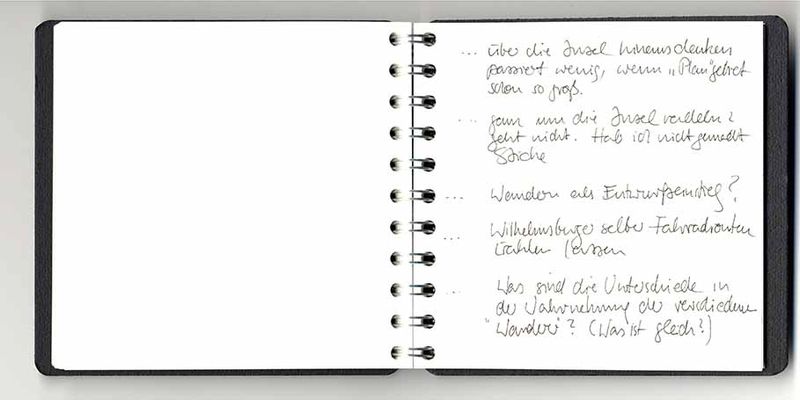 ... über die Insel hinausdenken
passiert wenig, wenn „Plangebiet
schon so groß.
... ganz um die Insel
geht nicht. Hab ich nicht gemacht
... Wandern als Entwurfseinstieg?
... Wilhelmsburger selber Fahrradrouten
wählen lassen
... Was sind die Unterschiede in
der Wahrnehmung der verschiedenen
"Wanderer"? (Was ist gleich?)